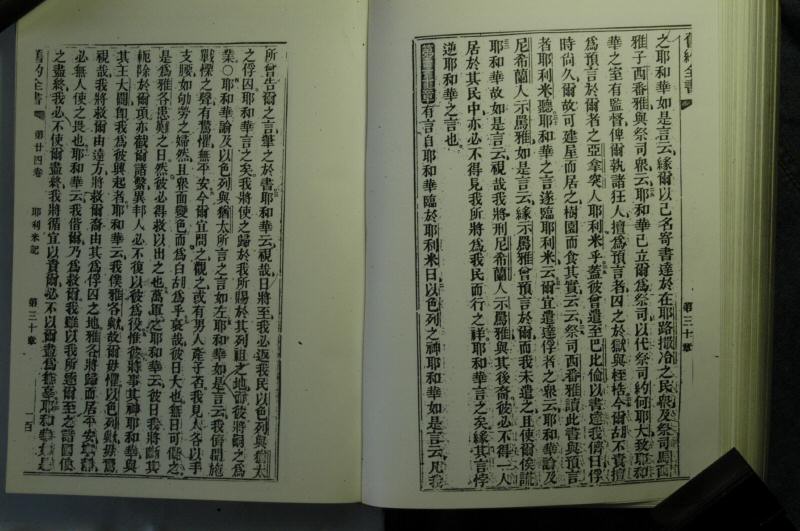 舊約全書
第三十章
之耶和華如是言云緣爾以己名寄書達於在耶路撒冷之民衆及祭司馬西
雅子西番雅與祭司衆云耶和華已立爾爲祭司以代祭司約何耶大致耶和
華之室有監督俾爾執諸狂人擅爲預言者囚之於獄與桎梏今爾胡不責擅
爲預言於爾者之亞拿突人耶利米乎蓋彼曾遣至巴比倫以書達我儕曰俘
時尚久爾故可建屋而居之樹園而食其實云云祭司西番雅讀此書與預言
者耶利米聽耶和華之言遂臨耶利米云爾宜遣達俘者之衆云耶和華論及
尼希蘭人示馬雅如是言云緣示馬雅曾預言於爾而我未遣之且使爾俟謊
耶和華故如是言云視哉我將刑尼希蘭人示馬雅與其後裔彼必不得一人
居於其民中亦必不得見我所將爲我民而行之祥耶和華言之矣緣其言悖
逆耶和華之言也
有言自耶和華臨於耶利米曰以色列之神耶和華如是言云凡我
所曾告爾之言筆之於書耶和華云視哉日將至我必返我民以色列與猶太
之俘囚耶和華言之矣我將使之歸於我所賜於其列祖之地彼將嗣之爲
業○耶和華論及以色列與猶太所言之言如左耶和華如是言云我儕聞
戰慄之聲有驚懼無平安今爾宜問之觀之或有男人產子否我見人各以手
支腰如劬勞之婦然且衆面變色而爲白胡爲乎哀哉彼日大也無日可儗之
是爲雅各患難之日然彼必得救以出之也萬軍之耶和華云彼日我將斷其
軛除於爾項亦截爾諸繫異邦人必不復以彼爲役惟彼將事其神耶和華與
其王大闢卽我爲彼興起者耶和華云我僕雅各歟故爾毋懼以色列歟毋驚
視哉我將救爾由遠方將救爾裔由其爲俘囚之地雅各將歸而居平安
必無人使之畏也耶和華云我偕爾乃爲救爾我雖以我所逐爾至之諸國使
之盡終我必不使爾盡終我將循宜以責爾必不以爾盡爲無辜耶和華如是
舊約全書
第廿四卷
耶利米記
第三十章
一百